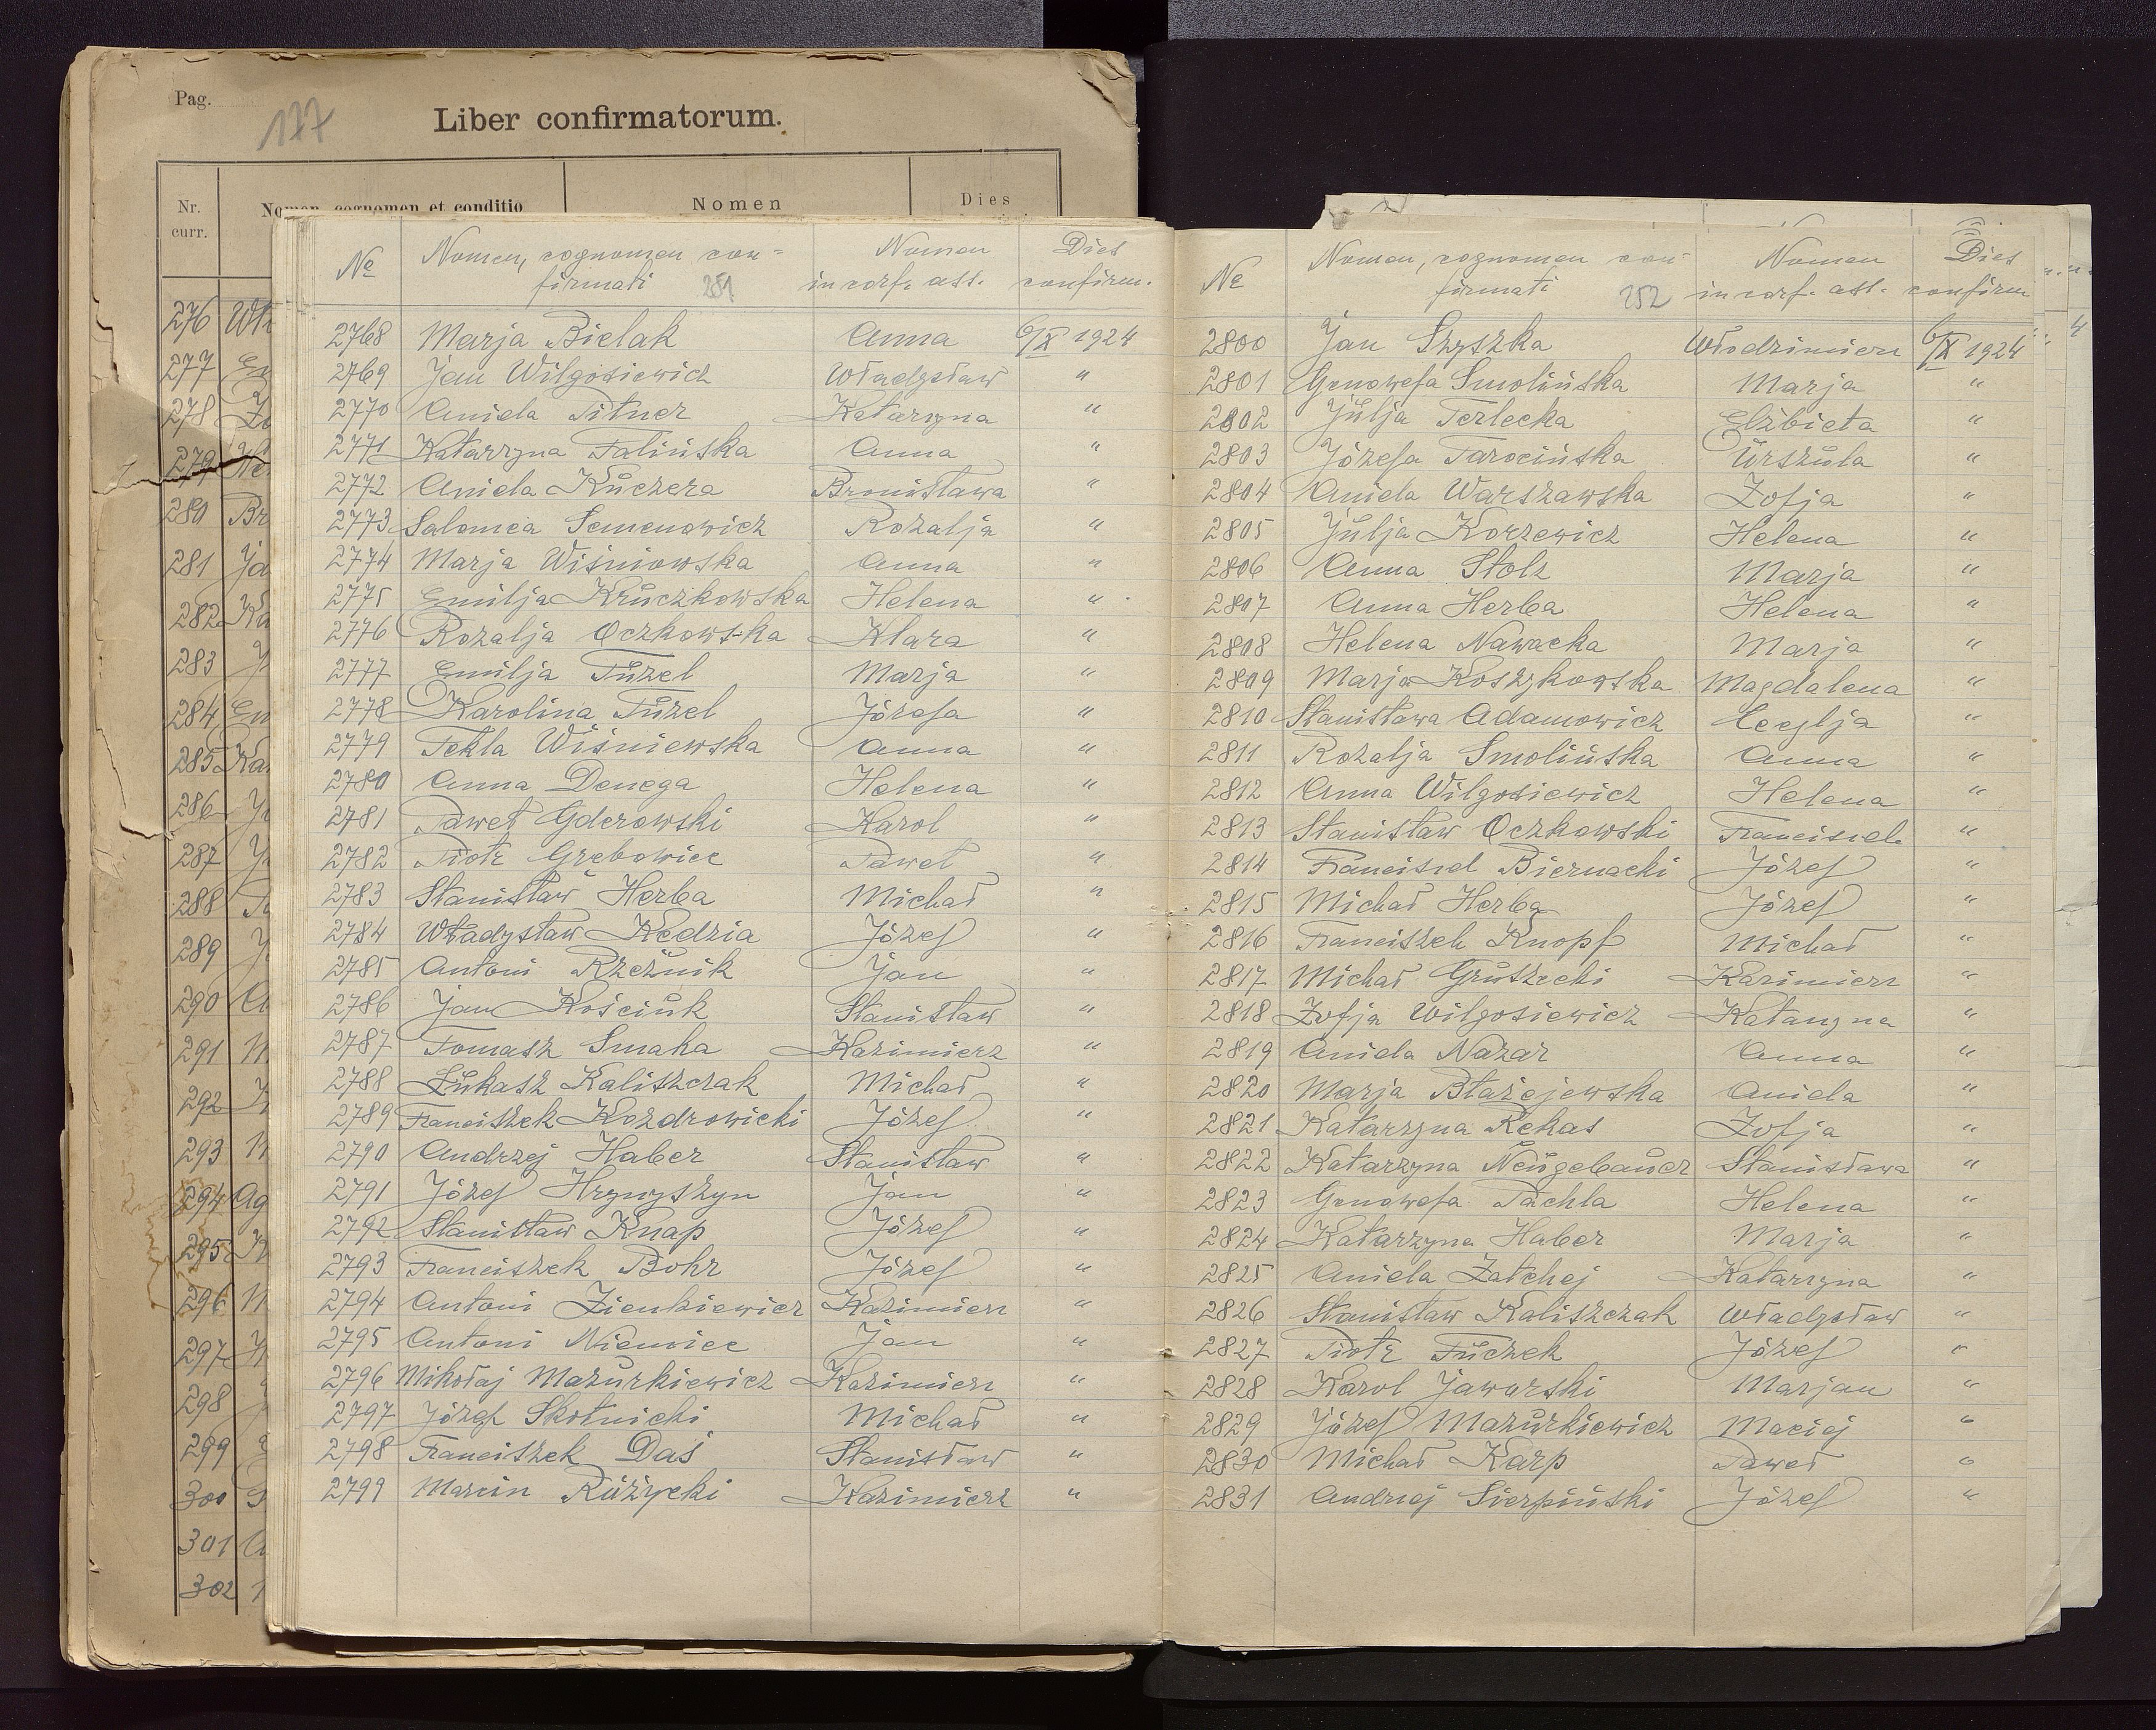 Pag.
177
Liber confirmatorum.
Nr. curr.
Nomen, cognomen et conditio
Nomen
Dies
276
277
278
279
280
281
282
283
284
285
286
287
288
289
290
291
292
293
294
295
296
297
298
299
300
301
302
№ Nomen, cognomen con= Nomen Dies
firmati 251 in conf. ass. confirm.
2768 Marja Bielak Anna 6/IX 1924
2769 Jan Wilgosiewicz Władysław "
2770 Aniela Pitner Katarzyna "
2771 Katarzyna Falińska Anna "
2772 Aniela Kuczera Bronisława "
2773 Salomea Semenowicz Rozalja "
2774 Marja Wiśniowska Anna "
2775 Emilja Kruczkowska Helena "
2776 Rozalja Oczkowska Klara "
2777 Emilja Fuzel Marja "
2778 Karolina Fuzel Józefa "
2779 Tekla Wiśniewska Anna "
2780 Anna Denega Helena "
2781 Paweł Gderowski Karol "
2782 Piotr Grebowiec Paweł "
2783 Stanisław Herba Michał "
2784 Władysław Kedzia Józef "
2785 Antoni Rzeźnik Jan "
2786 Jan Kościuk Stanisław "
2787 Tomasz Smaha Kazimierz "
2788 Łukasz Kaliszczak Michał "
2789 Franciszek Kozdrowicki Józef "
2790 Andrzej Haber Stanisław "
2791 Józef Hrynyszyn Jan "
2792 Stanisław Knap Józef "
2793 Franciszek Bohr Józef "
2794 Antoni Zienkiewicz Kazimierz "
2795 Antoni Niemiec Jan "
2796 Mikołaj Mazurkiewicz Kazimierz "
2797 Józef Skotnicki Michał "
2798 Franciszek Daś Stanisław "
2799 Marcin Różycki Kazimierz "
№ Nomen, cognomen con- Nomen Dies
firmati 252 in conf. ass. confirm
2800 Jan Szyszka Włodzimierz 6/IX 1924
2801 Genowefa Smolińska Marja "
2802 Julja Terlecka Elżbieta "
2803 Józefa Tarocińska Urszula "
2804 Aniela Warszawska Zofja "
2805 Julja Korzewicz Helena "
2806 Anna Stolz Marja "
2807 Anna Herba Helena "
2808 Helena Nawacka Marja "
2809 Marja Koszykowska Magdalena "
2810 Stanisława Adamowicz Cecylja "
2811 Rozalja Smolińska Anna "
2812 Anna Wilgosiewicz Helena "
2813 Stanisław Oczkowski Franciszek "
2814 Franciszek Biernacki Józef "
2815 Michał Herba Józef "
2816 Franciszek Knopf Michał "
2817 Michał Gruszecki Kazimierz "
2818 Zofja Wilgosiewicz Katarzyna "
2819 Aniela Nazar Anna "
2820 Marja Błażejewska Aniela "
2821 Katarzyna Rekas Zofja "
2822 Katarzyna Neugebauer Stanisława "
2823 Genowefa Pachla Helena "
2824 Katarzyna Haber Marja "
2825 Aniela Załchej Katarzyna "
2826 Stanisław Kaliszczak Władysław "
2827 Piotr Fuczek Józef "
2828 Karol Jaworski Marjan "
2829 Józef Mazurkiewicz Maciej "
2830 Michał Karp Paweł "
2831 Andrzej Sierpiński Józef "